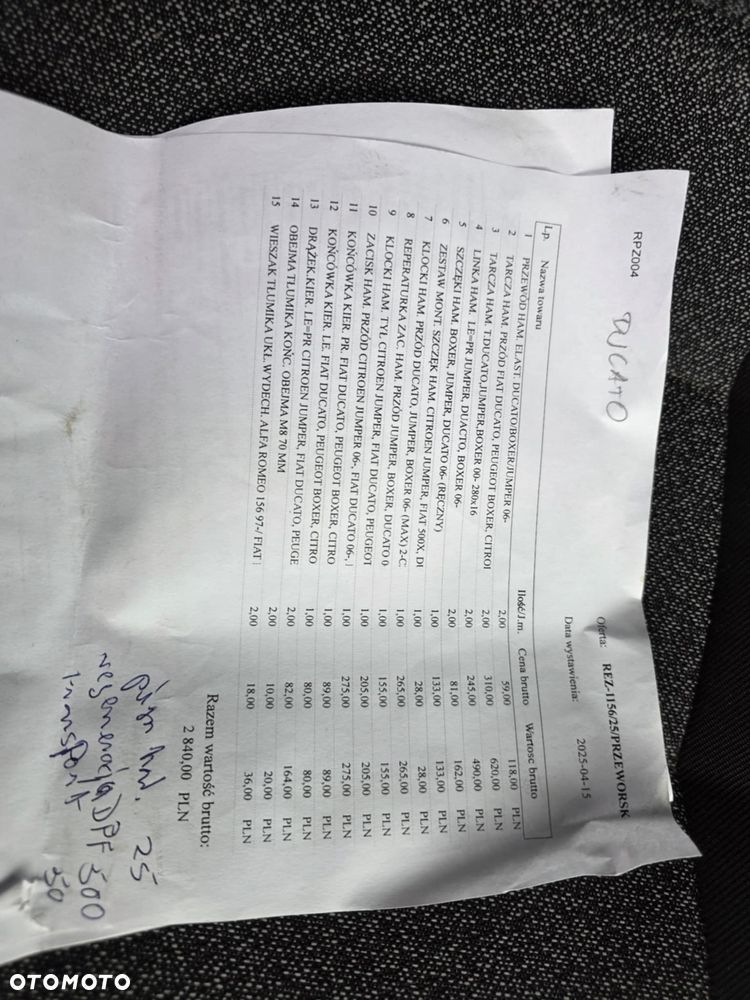 RPZ004
DUCATO
Oferta: REZ-1156/25/PRZEWORSK
Data wystawienia: 2025-04-15
Lp. Nazwa towaru Ilość/J.m. Cena brutto Wartość brutto
1 PRZEWÓD HAM. ELAST. DUCATO/BOXER/JUMPER 06- 2,00 59,00 118,00 PLN
2 TARCZA HAM. PRZÓD FIAT DUCATO, PEUGEOT BOXER, CITROI 2,00 310,00 620,00 PLN
3 TARCZA HAM. T.DUCATO,JUMPER,BOXER 00- 280x16 2,00 245,00 490,00 PLN
4 LINKA HAM. LE=PR JUMPER, DUACTO, BOXER 06- 2,00 81,00 162,00 PLN
5 SZCZĘKI HAM. BOXER, JUMPER, DUCATO 06- (RĘCZNY) 1,00 133,00 133,00 PLN
6 ZESTAW MONT. SZCZĘK HAM. CITROEN JUMPER, FIAT 500X, DI 1,00 28,00 28,00 PLN
7 KLOCKI HAM. PRZÓD DUCATO, JUMPER, BOXER 06- (MAX) 2-C 1,00 265,00 265,00 PLN
8 REPERATURKA ZAC. HAM. PRZÓD JUMPER, BOXER, DUCATO 0 1,00 155,00 155,00 PLN
9 KLOCKI HAM. TYŁ CITROEN JUMPER, FIAT DUCATO, PEUGEOT 1,00 205,00 205,00 PLN
10 ZACISK HAM. PRZÓD CITROEN JUMPER 06-, FIAT DUCATO 06-, 1,00 275,00 275,00 PLN
11 KOŃCÓWKA KIER. PR. FIAT DUCATO, PEUGEOT BOXER, CITRO 1,00 89,00 89,00 PLN
12 KOŃCÓWKA KIER. LE. FIAT DUCATO, PEUGEOT BOXER, CITRO 1,00 80,00 80,00 PLN
13 DRĄŻEK.KIER. LE=PR CITROEN JUMPER, FIAT DUCATO, PEUGE 2,00 82,00 164,00 PLN
14 OBEJMA TŁUMIKA KOŃC. OBEJMA M8 70 MM 2,00 10,00 20,00 PLN
15 WIESZAK TŁUMIKA UKŁ. WYDECH. ALFA ROMEO 156 97-/ FIAT 2,00 18,00 36,00 PLN
Razem wartość brutto:
2 840,00 PLN
płyn ham. 25
regeneracja DPF 500
transport 50
OTOMOTO